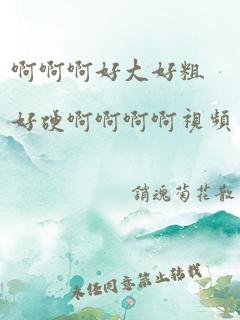 啊啊啊好大好粗
好硬啊啊啊啊視頻
銷魂菊花散
未经同意禁止转载